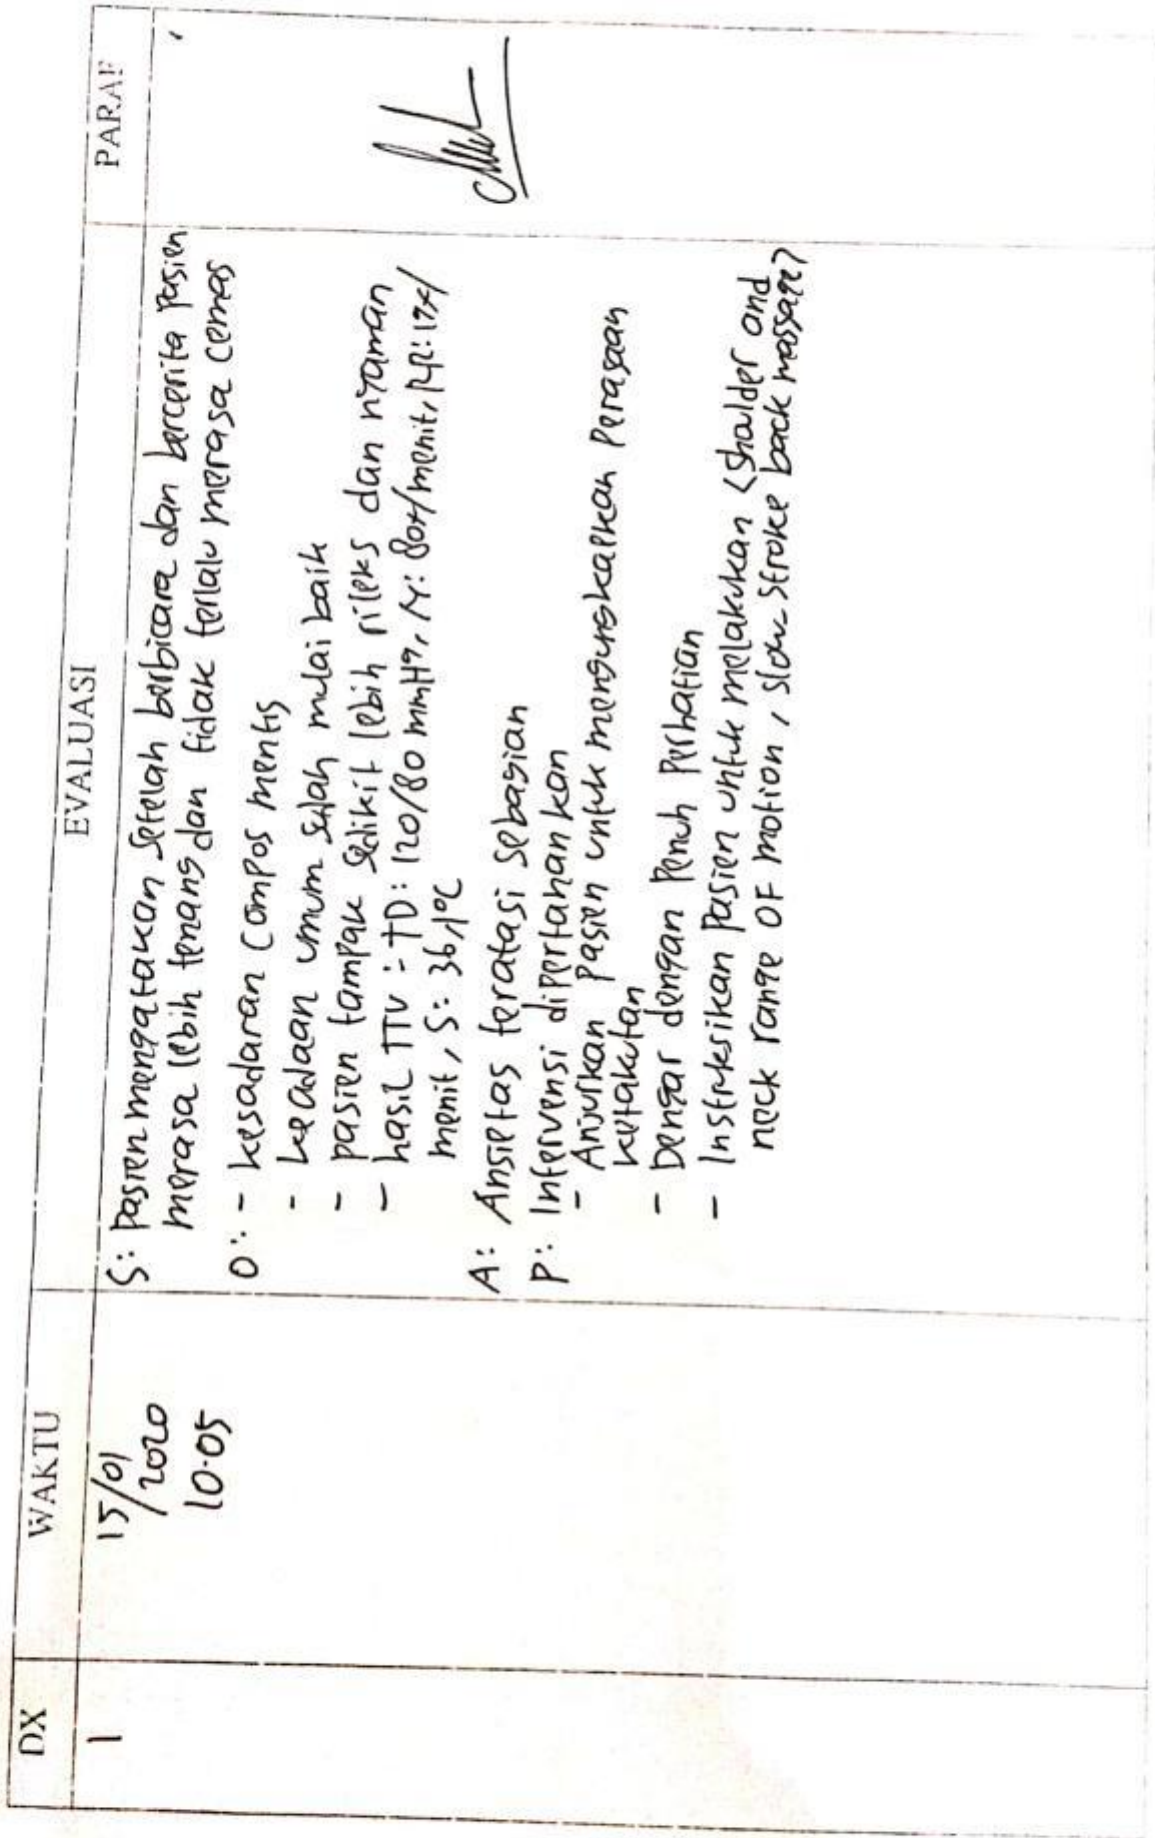 DX WAKTU EVALUASI PARAF
1
15/01
/2020
10.05
S: Pasien mengatakan setelah berbicara dan bercerita pasien
merasa lebih tenang dan tidak terlalu merasa cemas
O: - kesadaran compos mentis
- keadaan umum sudah mulai baik
- pasien tampak sedikit lebih rileks dan nyaman
- hasil TTV : TD: 120/80 mmHg, N: 80x/menit, RR: 19x/
menit, S: 36,1°C
A: Ansietas teratasi sebagian
P: Intervensi dipertahankan
- Anjurkan pasien untuk mengungkapkan perasaan
ketakutan
- Dengar dengan penuh perhatian
- Instruksikan pasien untuk melakukan (shoulder and
neck range of motion, slow stroke back massage)